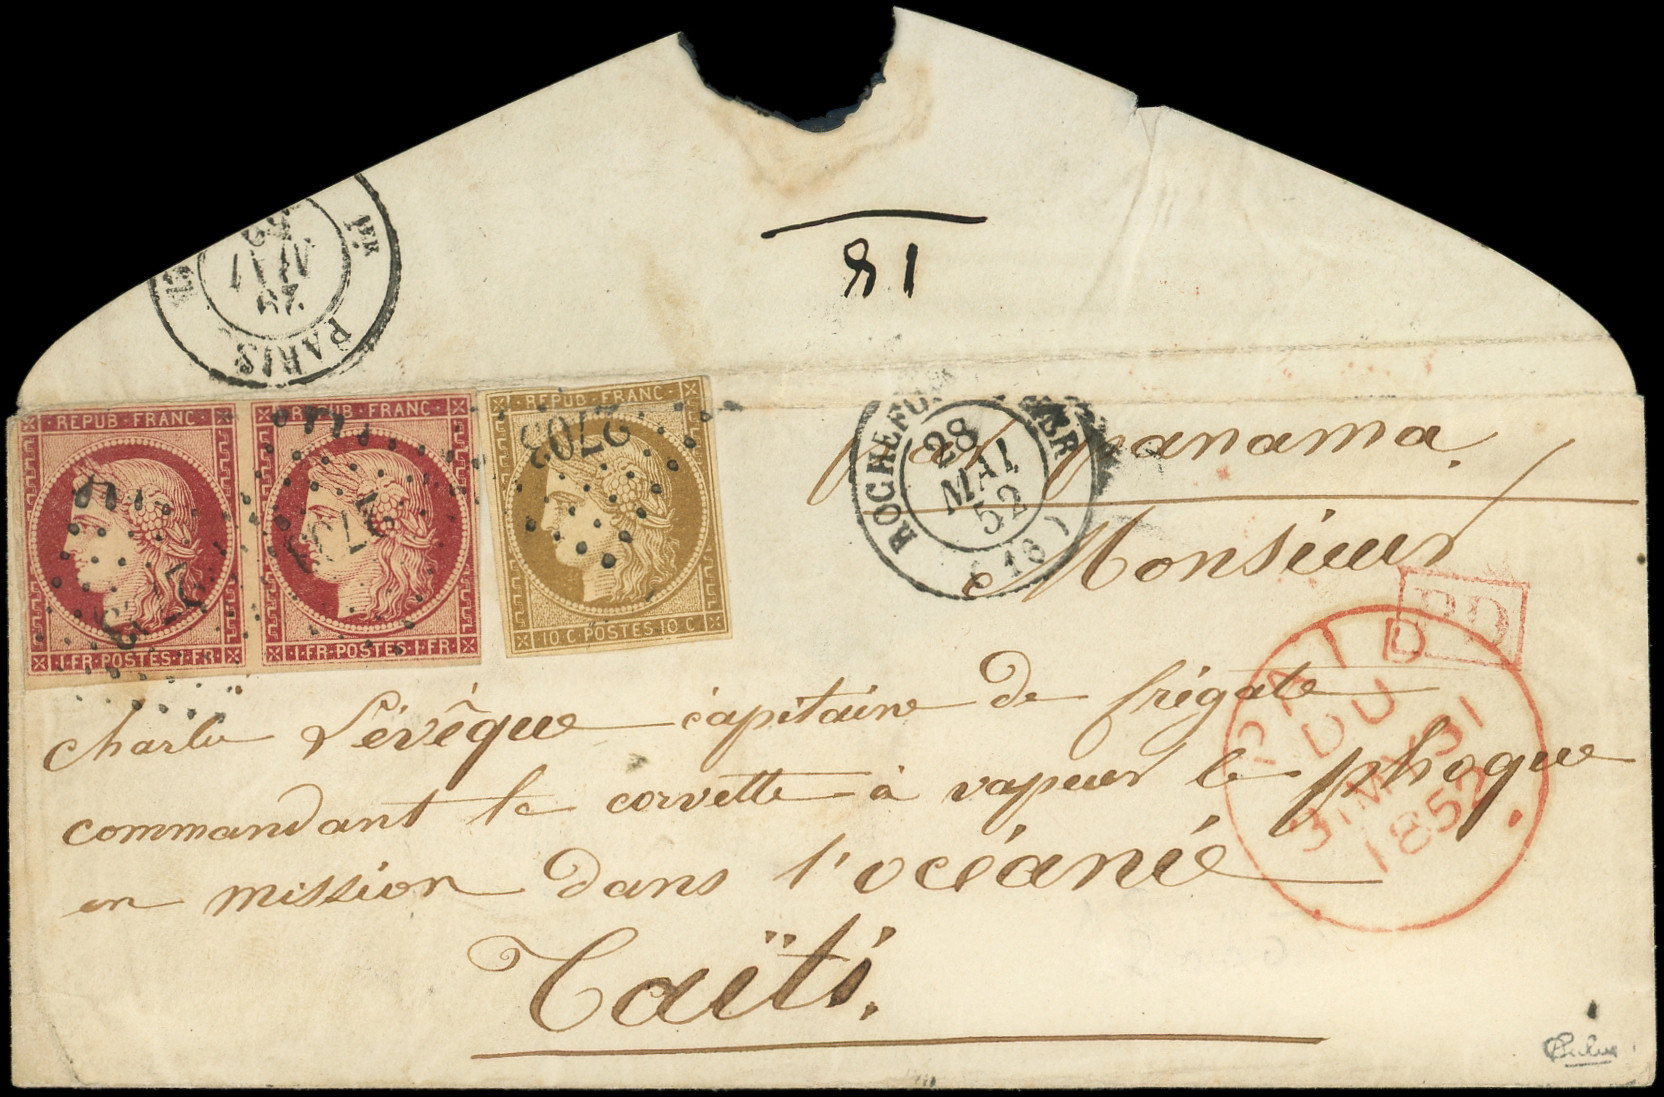 81
PARIS
1ER
29
MAI
52
REPUB FRANC
1 FR POSTES 1 FR
REPUB FRANC
1 FR POSTES 1 FR
REPUB FRANC
10 C POSTES 10 C
2703
2703
2703
ROCHEFORT S MER
28
MAI
52
(16)
par panama.
Monsieur
PD
PAID
DU
31 MY 31
1852
charles Lévêque capitaine de frégate
commandant le corvette à vapeur le phoque
en mission dans l'océanie
Taïti.